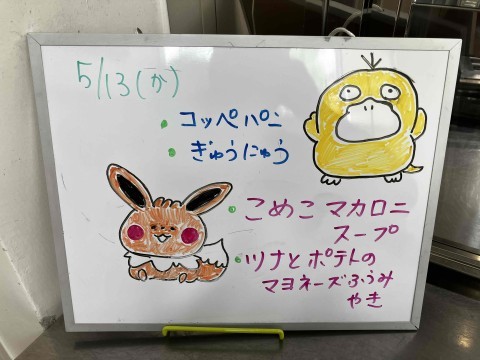 5/13(か)
コッペパン
ぎゅうにゅう
こめこマカロニ
スープ
ツナとポテトの
マヨネーズふうみ
やき